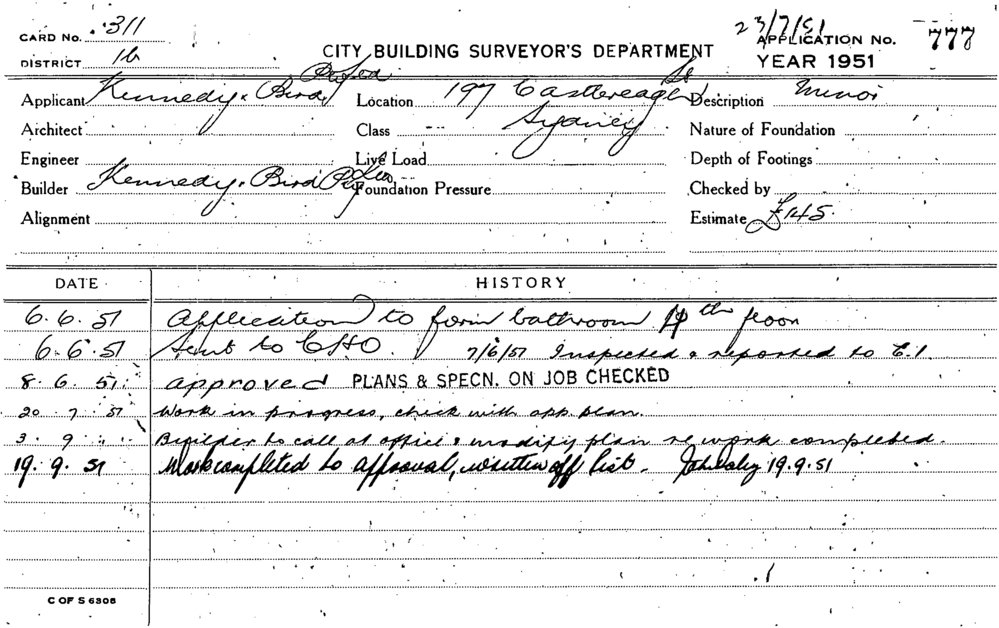 CARD No. 311
DISTRICT 1b
CITY BUILDING SURVEYOR'S DEPARTMENT
23/7/51
APPLICATION No. 777
YEAR 1951
Applicant Kennedy & Bird Pty Ltd
Location 197 Castlereagh St Sydney
Description Minor
Architect
Class
Nature of Foundation
Engineer
Live Load
Depth of Footings
Builder Kennedy & Bird Pty Ltd
Foundation Pressure
Checked by
Alignment
Estimate £145.
DATE HISTORY
6.6.51 Application to form bathroom th floor
6.6.51 Sent to CHO. 7/6/51 Inspected & reported to C.I.
8.6.51 approved PLANS & SPECN. ON JOB CHECKED
20.7.51 Work in progress, check with app. plan.
3.9. " Builder to call at office & modify plan re work completed.
19.9.51 Work completed to approval, written off list. 19.9.51
C OF S 6308